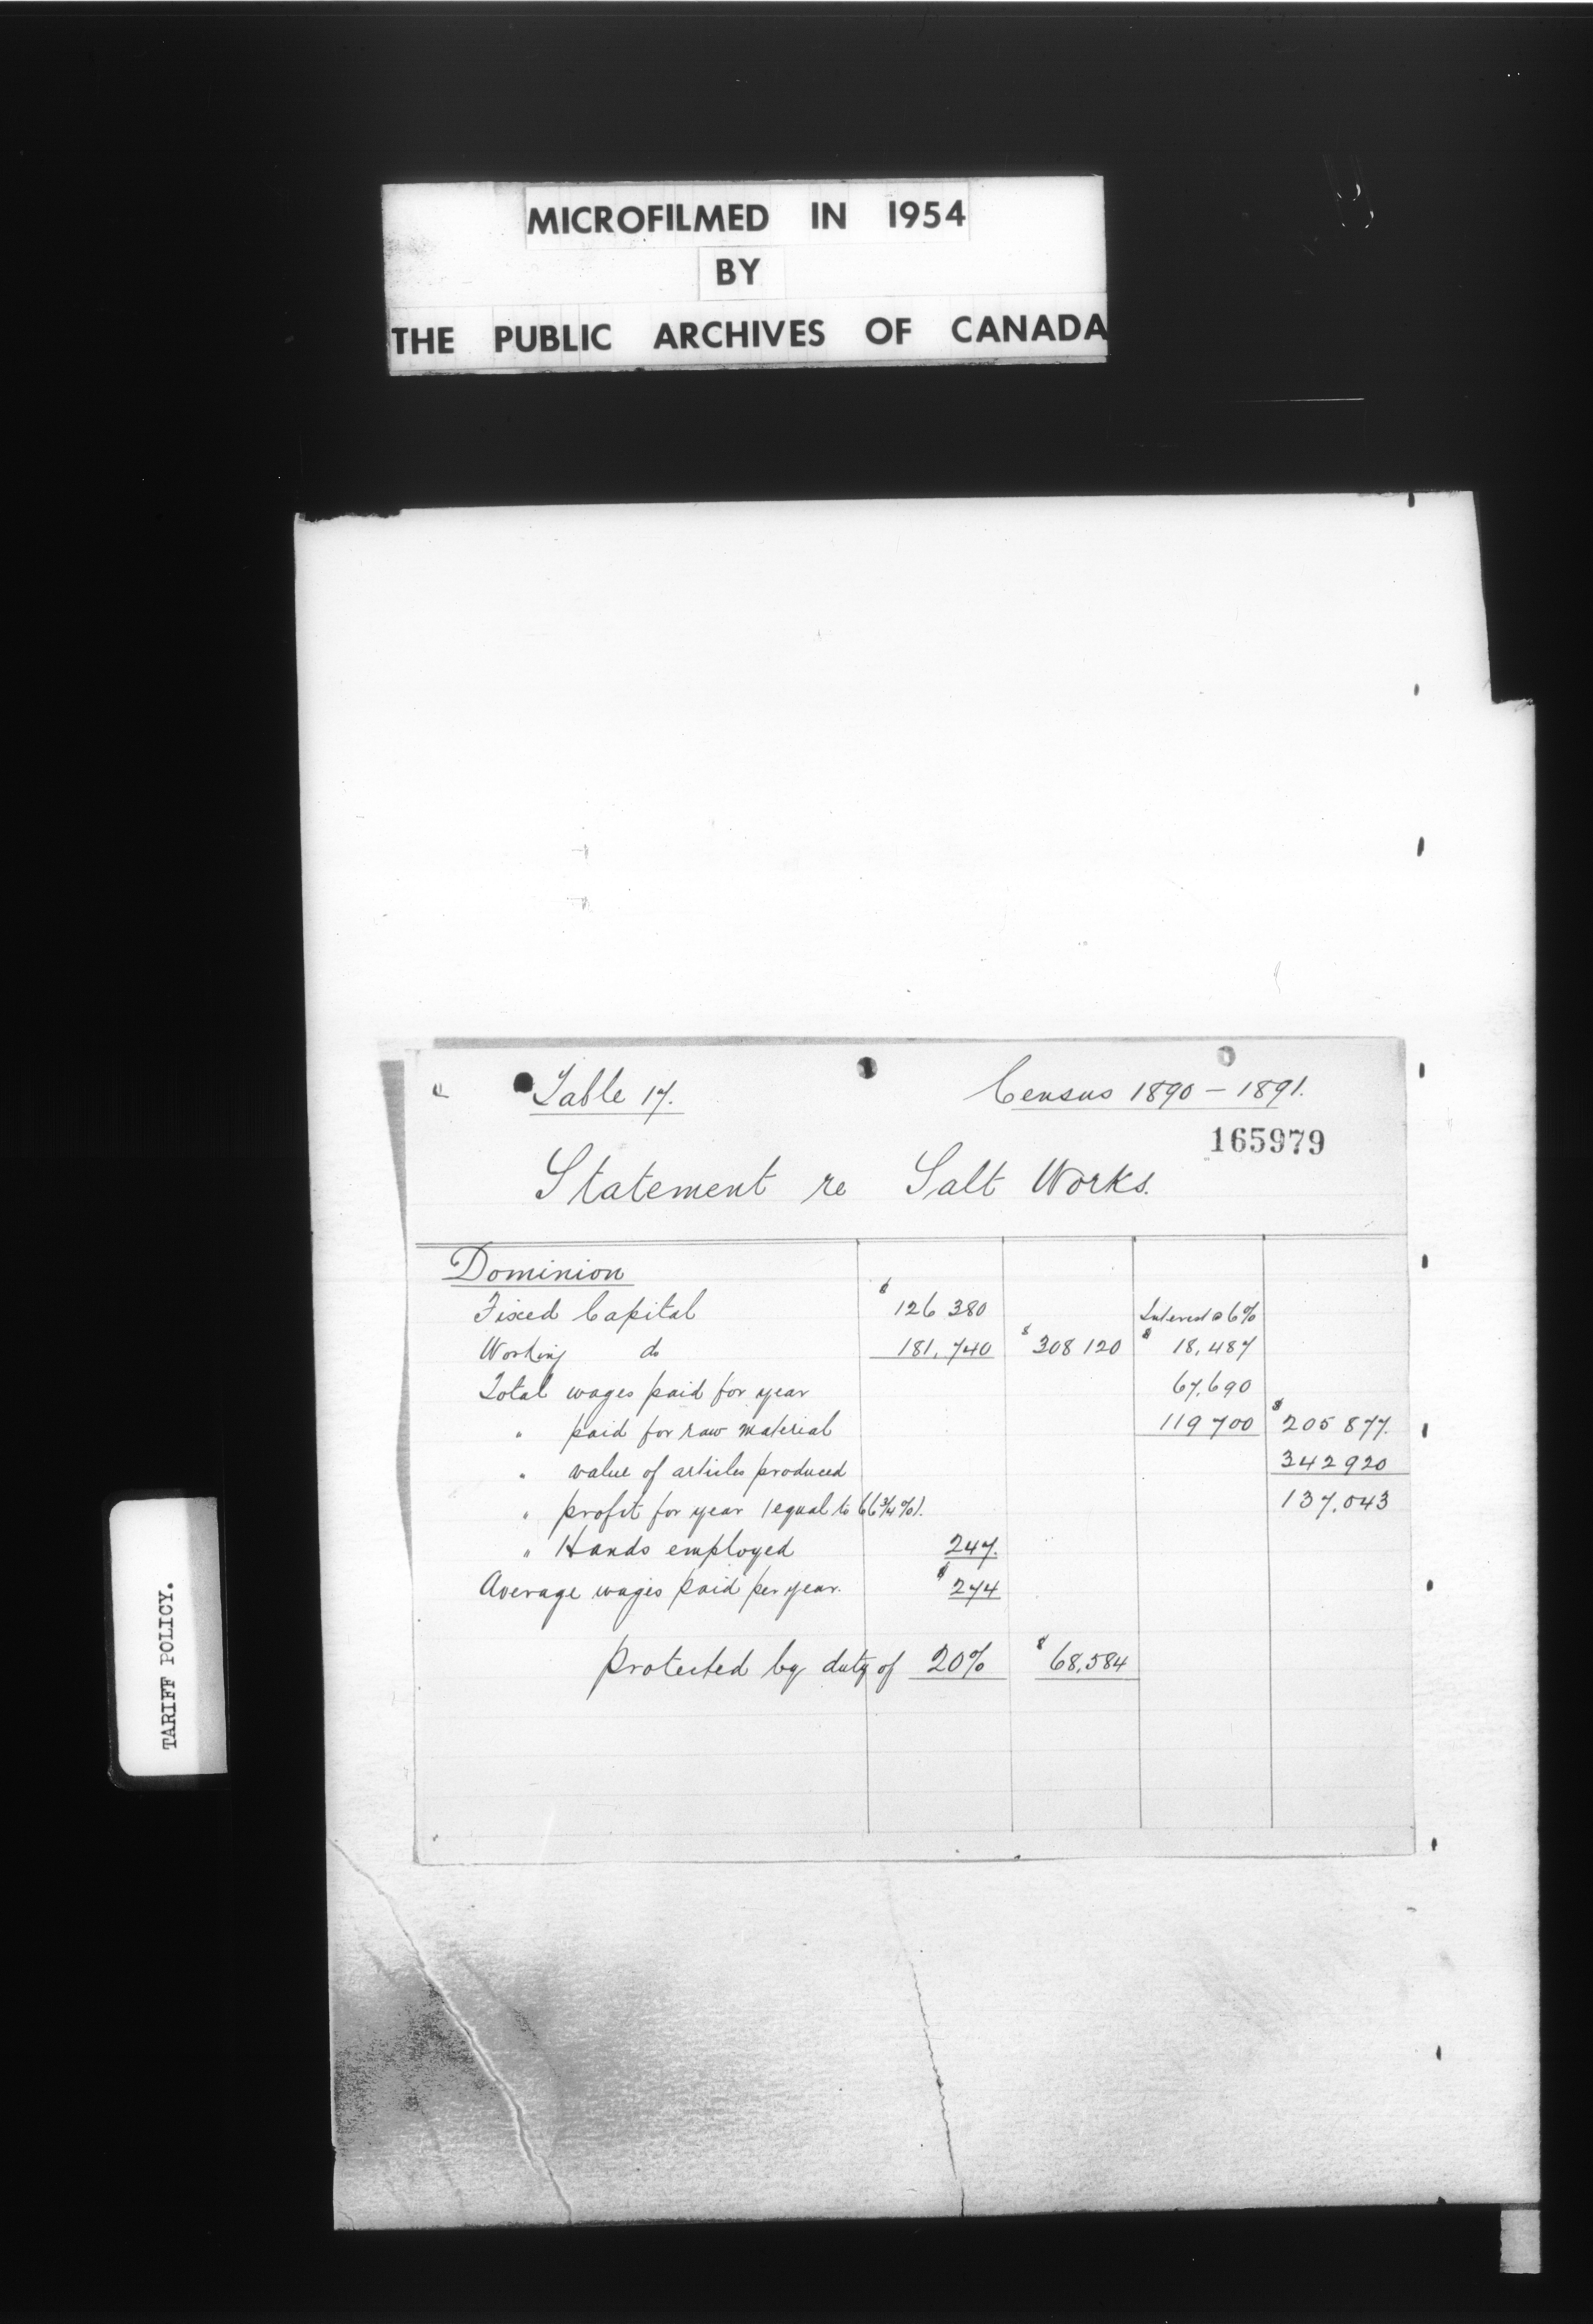 MICROFILMED IN 1954
BY
THE PUBLIC ARCHIVES OF CANADA
Table 17. Census 1890 – 1891.
165979
Statement re Salt Works.
Dominion
Fixed Capital $ 126 380 Interest @ 6%
Working do 181,740 $ 308 120 $ 18,487
Total wages paid for year 67,690
" paid for raw material 119 700 $ 205 877.
" value of articles produced 342 920
" profit for year (equal to 66 3/4 %). 137,043
" Hands employed 247.
Average wages paid per year. $ 274
Protected by duty of 20% $ 68,584
TARIFF POLICY.